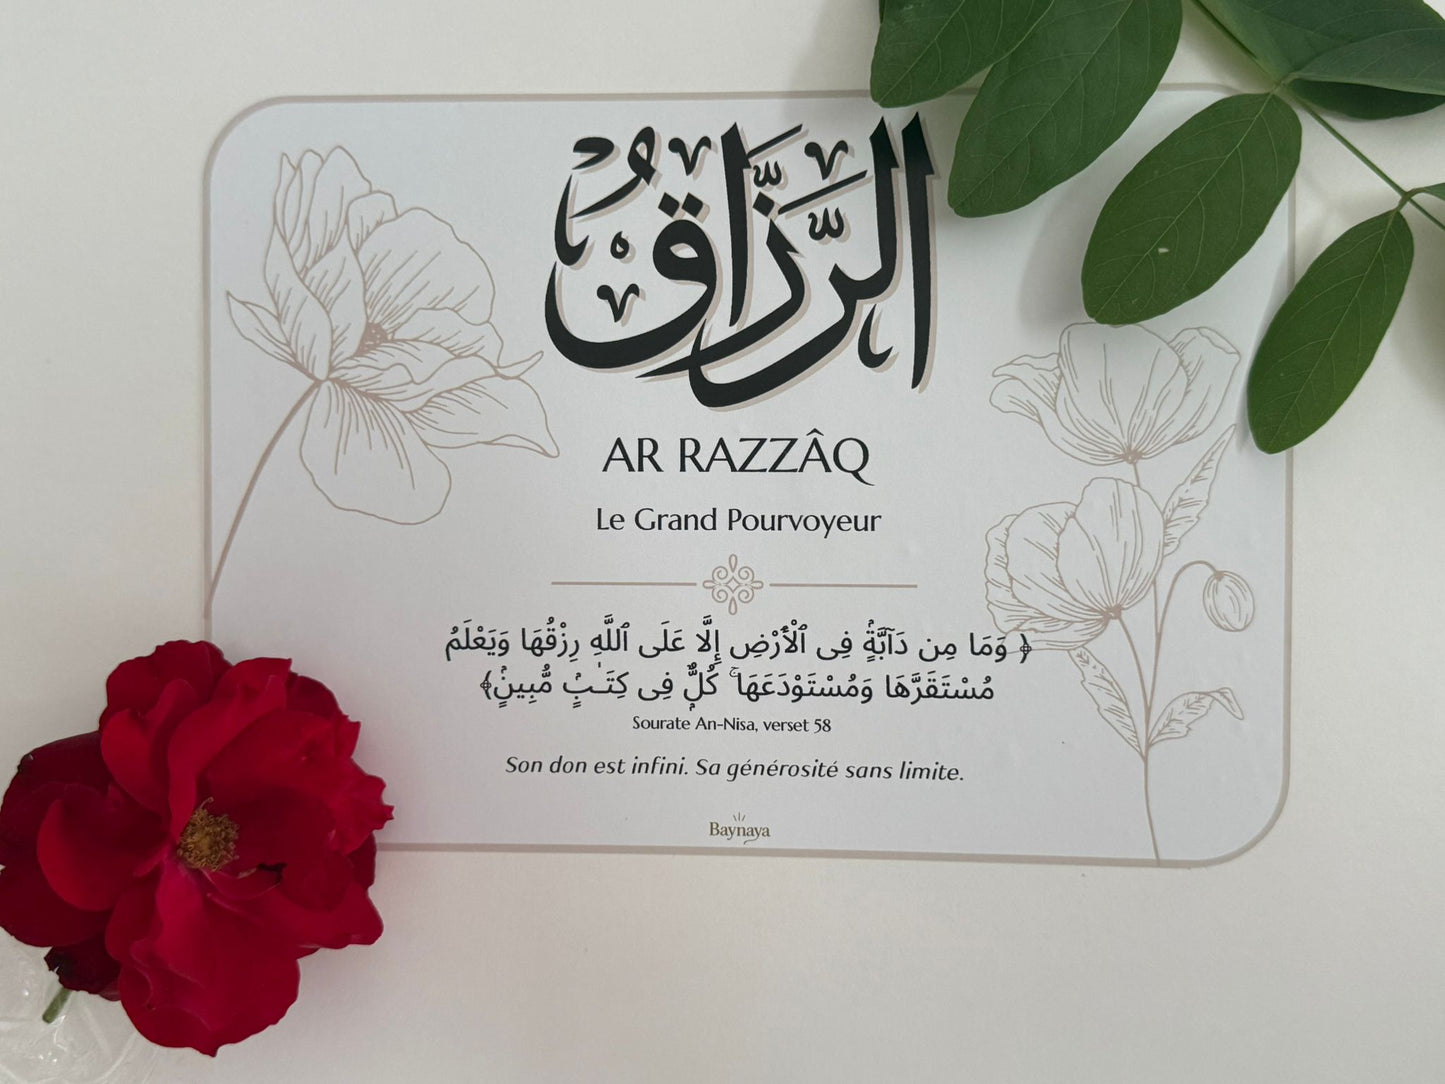 الرَّزَّاقُ
AR RAZZÂQ
Le Grand Pourvoyeur
﴿ وَمَا مِن دَآبَّةٍۢ فِى ٱلْأَرْضِ إِلَّا عَلَى ٱللَّهِ رِزْقُهَا وَيَعْلَمُ
مُسْتَقَرَّهَا وَمُسْتَوْدَعَهَا ۚ كُلٌّۭ فِى كِتَـٰبٍۢ مُّبِينٍۢ﴾
Sourate An-Nisa, verset 58
Son don est infini. Sa générosité sans limite.
Baynaya